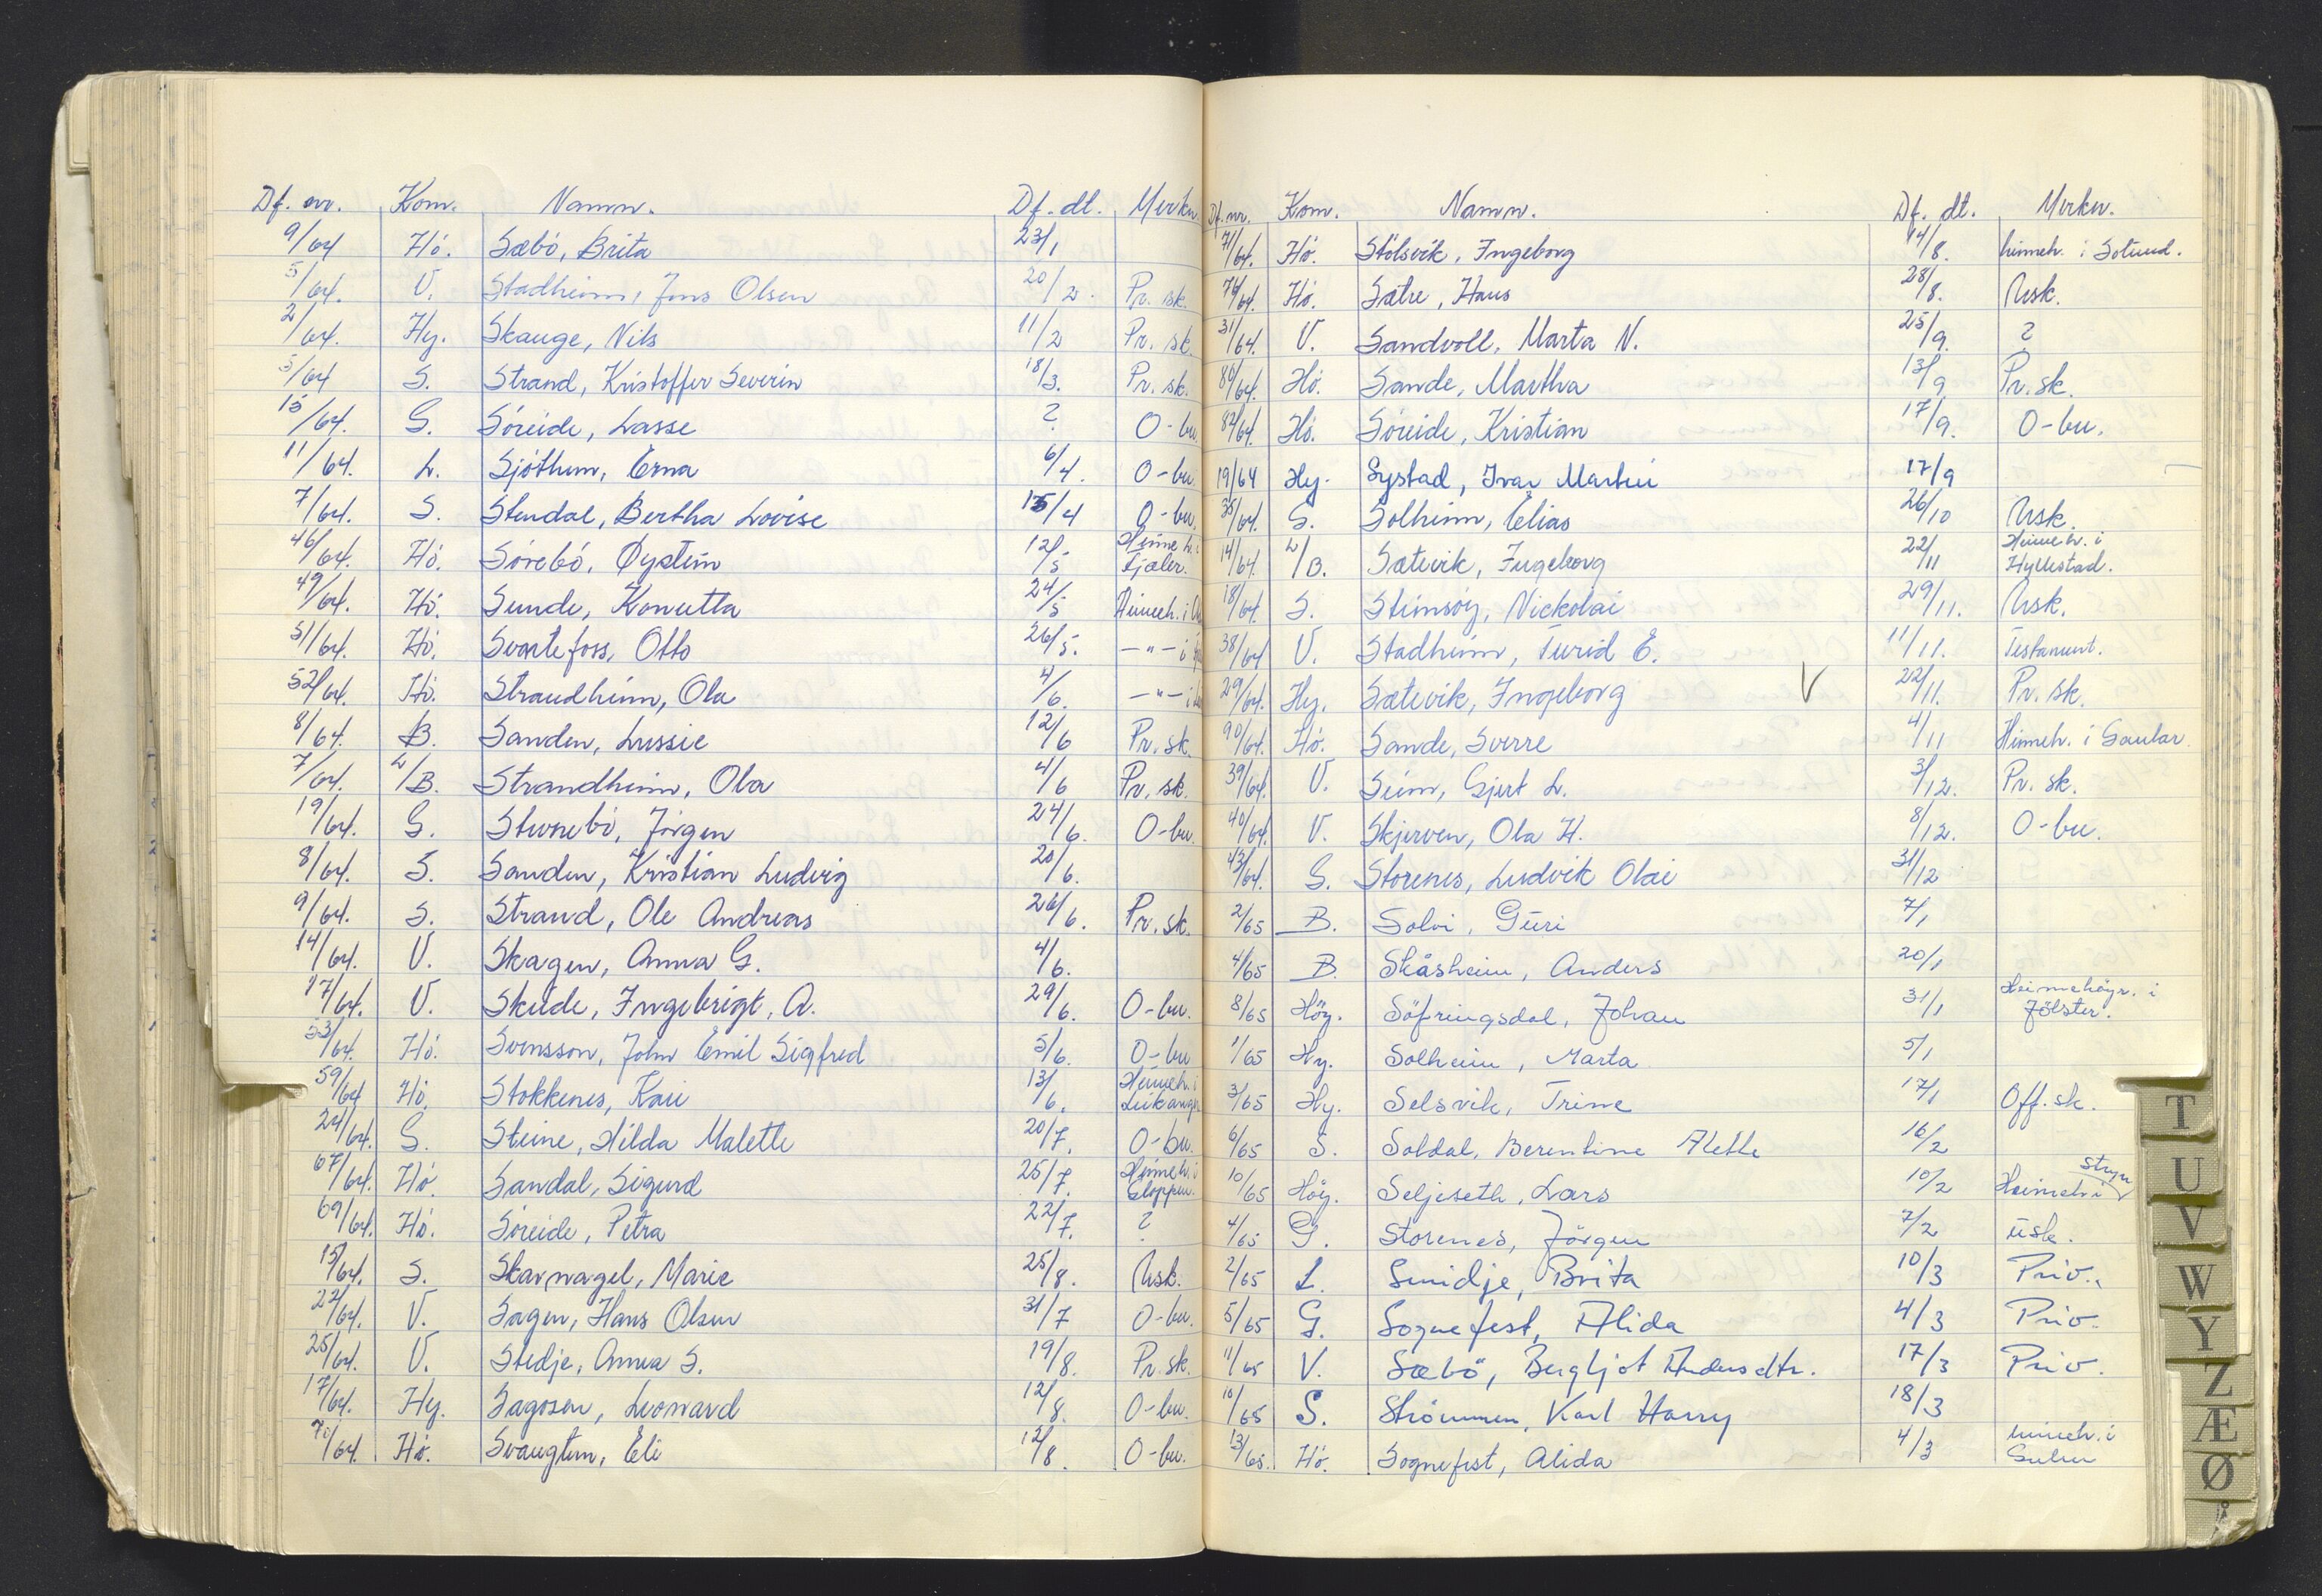 Df. nr. Kom. Namn. Df. dt. Merkn.
9/64 Hö. Sæbö, Brita 23/1
5/64. V. Stadheim, Jens Olsen 20/2. Pr. sk.
2/64. Hy. Skauge, Nils 11/2 Pr. sk.
5/64 S. Strand, Kristoffer Severin 18/3. Pr. sk.
15/64. G. Söreide, Lasse ? O-bu.
11/64. L. Sjöthun, Erna 6/4. O-bu.
7/64. S. Stendal, Bertha Lovise 15/4 O-bu.
46/64. Hö. Sörebö, Øystein 12/5 Heimeh. i Fjaler.
49/64. Hö. Sunde, Konutta 24/5 Heimeh. i
51/64. Hö. Svartefoss, Otto 26/5. —"— i
52/64. Hö. Strandheim, Ola 4/6. —"— i
8/64. B. Sanden, Lussie 12/6 Pr. sk.
7/64. L/B. Strandheim, Ola 4/6 Pr. sk.
19/64. G. Stursebö, Jörgen 24/6. O-bu.
8/64. S. Sanden, Kristian Ludvig 20/6.
9/64. S. Strand, Ole Andreas 26/6. Pr. sk.
14/64. V. Skagen, Anna G. 4/6.
17/64. V. Skeide, Ingebrigt, A. 29/6. O-bu.
53/64. Hö. Svensson, John Emil Sigfred 5/6. O-bu
59/64 Hö. Stokkenes, Kari 13/6. Heimeh. i Leikanger
24/64. G. Steine, Hilda Malette 20/7. O-bu.
67/64. Hö. Sandal, Sigurd 25/7. Heimeh. i Gloppen.
69/64. Hö. Söreide, Petra 22/7. ?
15/64. S. Skarnagel, Marie 25/8. Usk.
22/64. V. Sagen, Hans Olsen 31/7 O-bu.
25/64. V. Stedje, Anna S. 19/8. Pr. sk.
17/64. Hy. Sagosen, Leonard 12/8. O-bu.
70/64. Hö. Svangtun, Eli 12/8. O-bu.
Df. nr. Kom. Namn. Df. dt. Merkn.
71/64. Hö. Stölsvik, Ingeborg 14/8. heimeh. i Solund.
74/64. Hö. Sætre, Hans 28/8. Usk.
31/64. V. Sandvoll, Marta N. 25/9. ?
80/64. Hö. Sande, Martha 13/9 Pr. sk.
82/64. Hö. Söreide, Kristian 17/9. O-bu.
19/64 Hy. Systad, Ivar Martin 17/9
35/64. S. Solheim, Elias 26/10 Usk.
14/64. L/B. Sætevik, Ingeborg 22/11 Heimeh. i Hyllestad.
18/64. S. Steinsöy, Nickolai 29/11. Usk.
38/64 V. Stadheim, Turid E. 11/11. Testament.
29/64. Hy. Sætevik, Ingeborg V 22/11. Pr. sk.
90/64. Hö. Sande, Sverre 4/11 Heimeh. i Gaular.
39/64. V. Seim, Gjert L. 3/12. Pr. sk.
40/64. V. Skjerven, Ola H. 8/12. O-bu.
43/64. G. Storenes, Ludvik Olai 31/12
2/65 B. Solvi, Guri 7/1
4/65 B. Skåsheim, Anders 20/1
8/65 Höy. Söfringsdal, Johan 31/1 Heimehöyr. i Jölster.
1/65 Hy. Solheim, Marta 5/1
3/65 Hy. Selsvik, Trine 17/1 Off. sk.
6/65 S. Soldal, Berentine Alette 16/2
10/65 Höy. Seljeseth, Lars 10/2 Heimeh i Stryn
4/65 G. Storenes, Jörgen 7/2 usk.
2/65 L. Smidje, Brita 10/3 Priv.
5/65 G. Sognefest, Alida 4/3 Priv.
11/65 V. Sæbö, Bergljot Andersdtr. 17/3 Priv.
10/65 S. Strömmen, Karl Harry 18/3
13/65. Hö. Sognefest, Alida 4/3 heimeh. i Gulen
T
U
V
W
Y
Z
Æ
Ø
Å